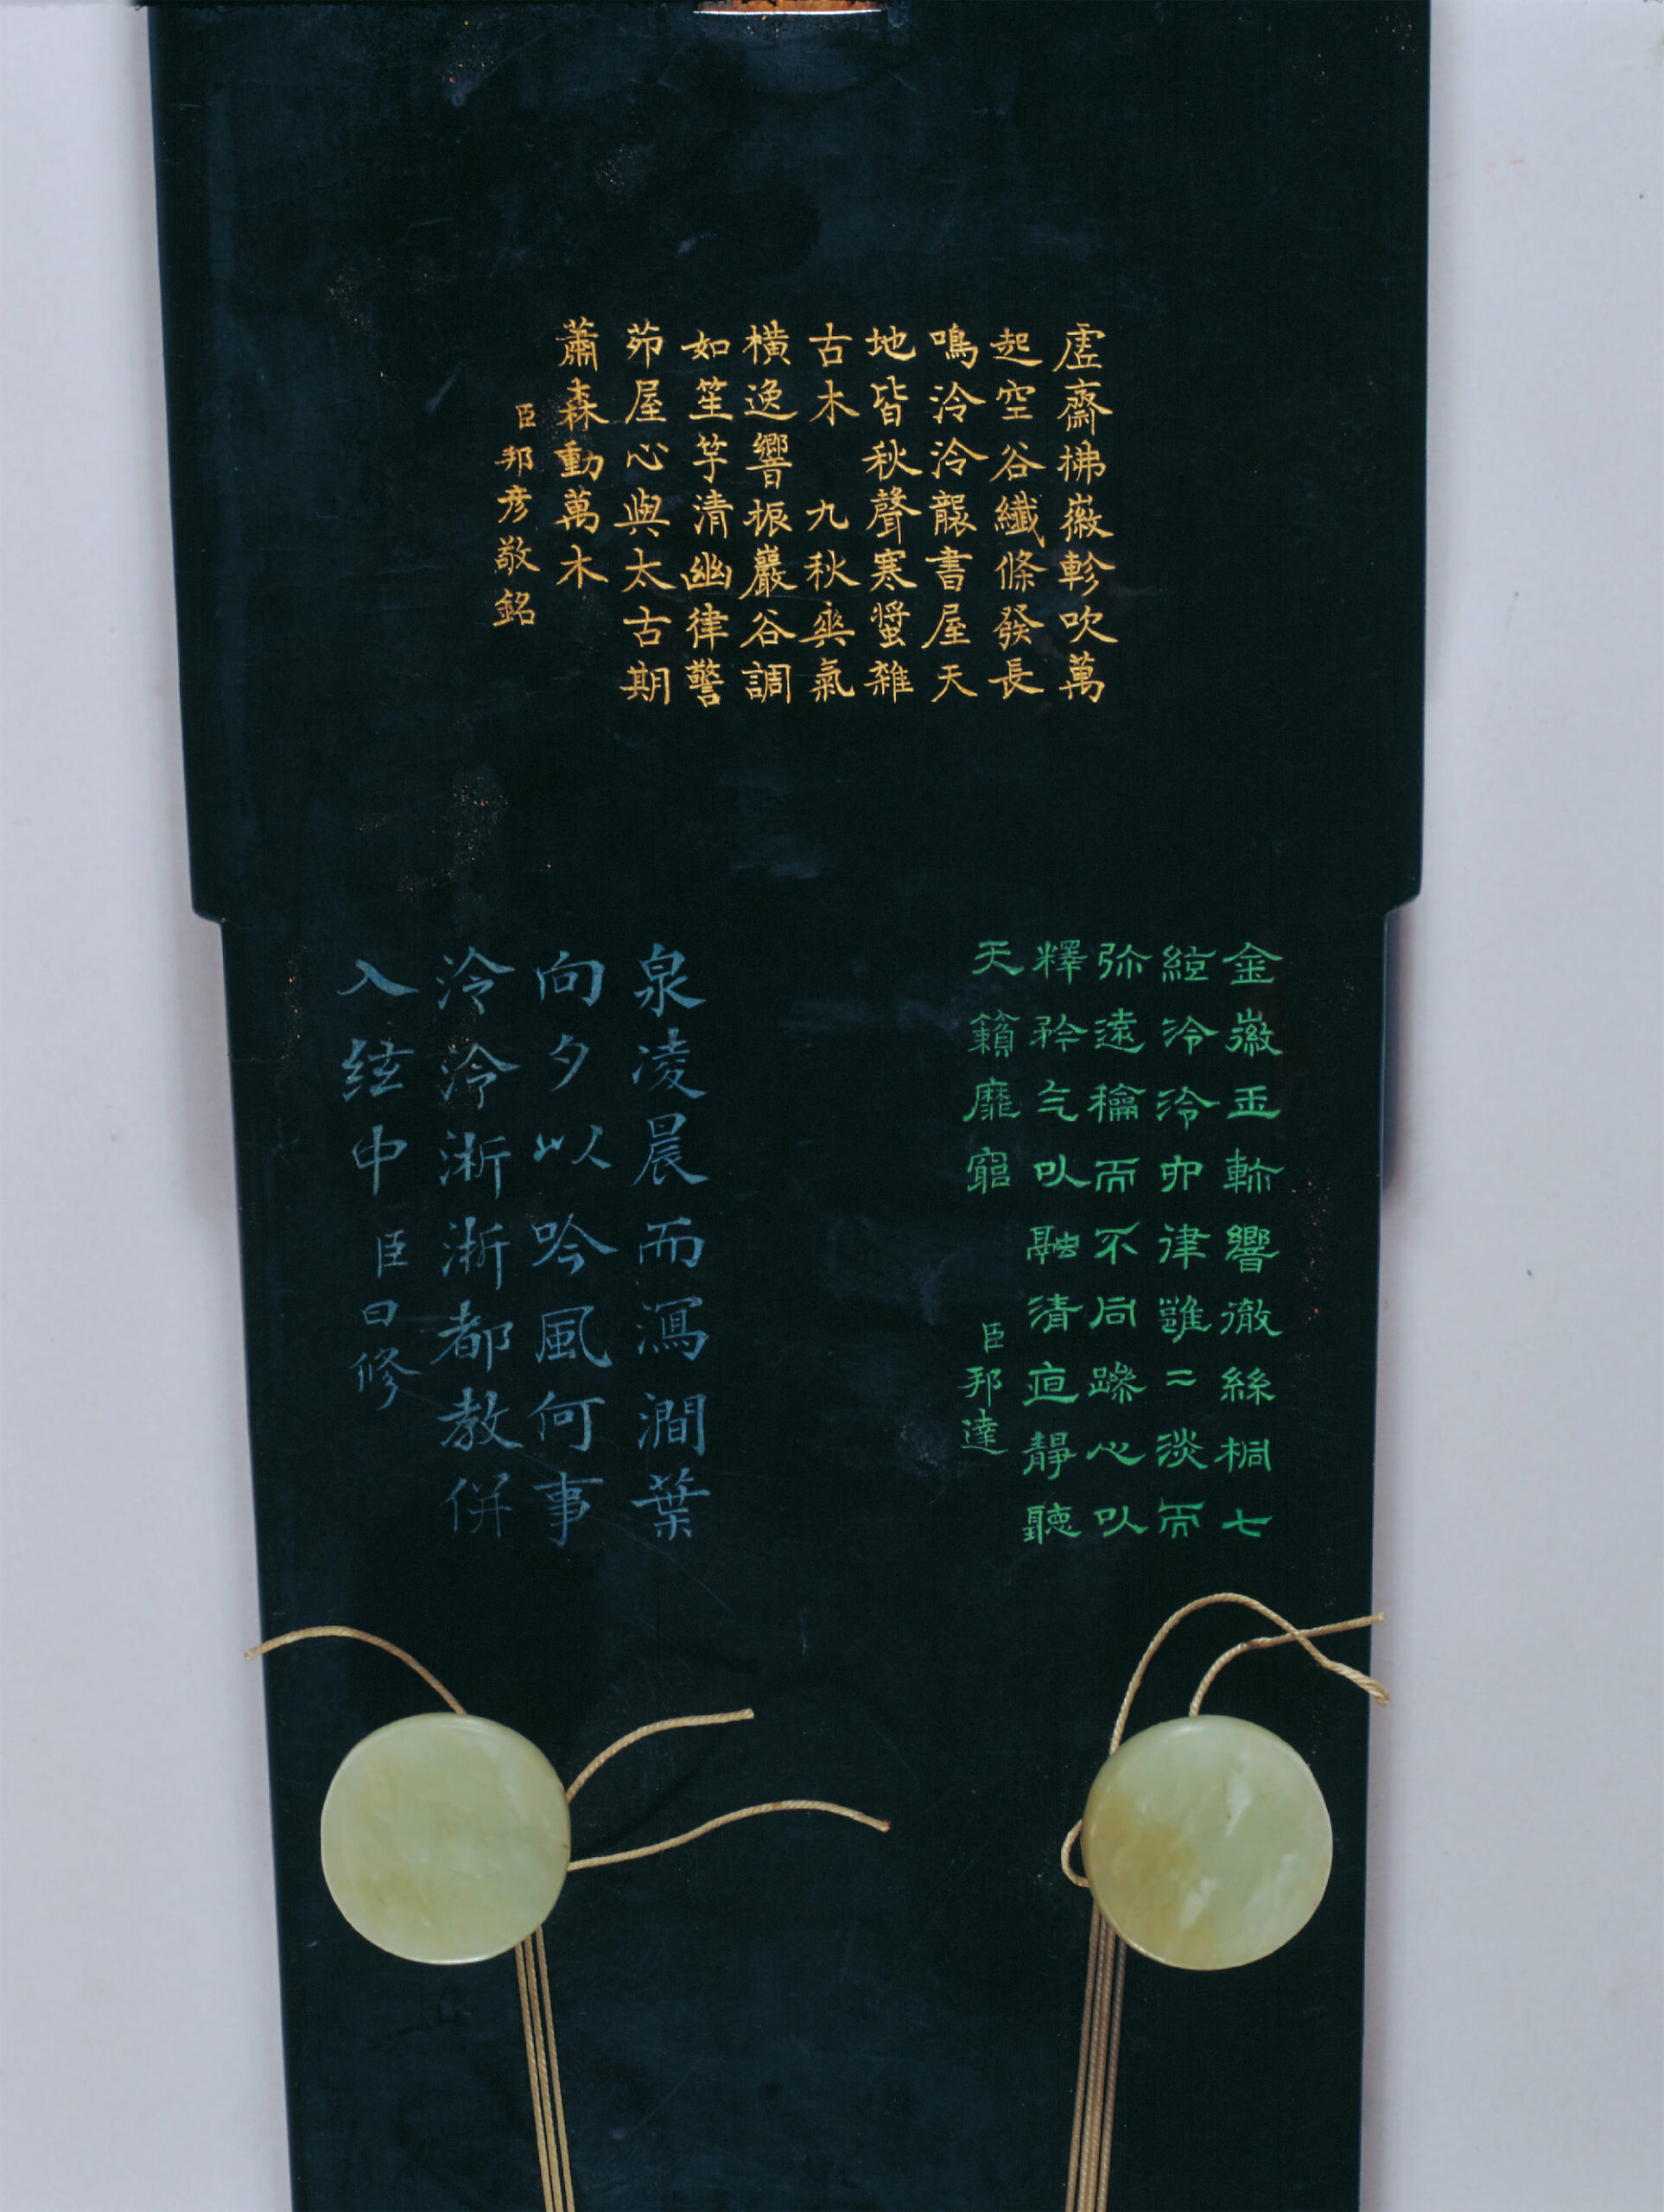 虛齋拂徽軫吹萬
起空谷纖條發長
鳴泠泠韻書屋天
地皆秋聲寒螿雜
古木 九秋爽氣
橫逸響振巖谷調
如笙竽清幽律警
茆屋心與太古期
蕭森動萬木
臣邦彥敬銘
金徽玉軫響徹絲桐七
絃泠泠卯律雝二淡而
弥遠穐而不同躁心㠯
釋矜气㠯融清亱靜聽
天籟靡窮
臣邦達
泉凌晨而瀉澗葉
向夕以吟風何事
泠泠淅淅都教併
入絃中
臣曰修